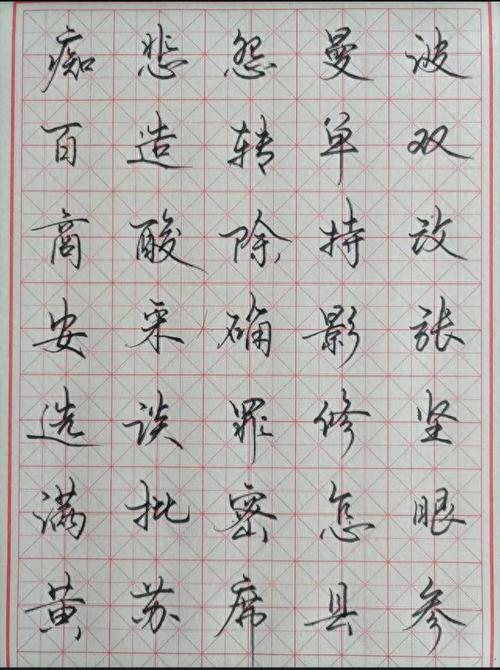 痴悲怨曼波
百造转单双
商酸除持改
安采确影张
选谈罪修坚
满批密怎眼
黄苏席县参